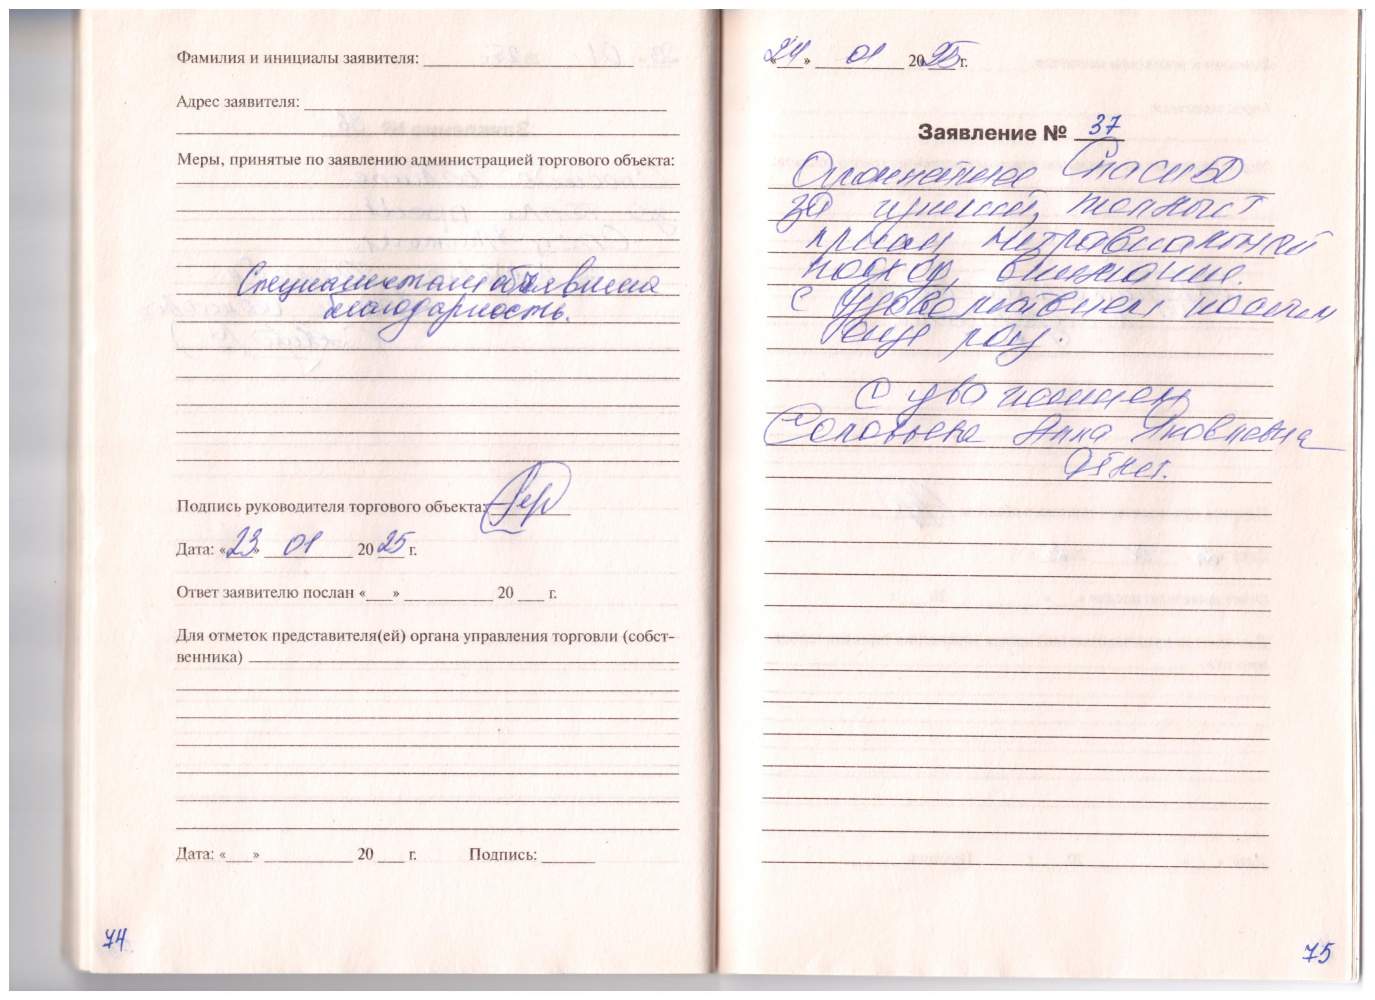 Фамилия и инициалы заявителя:
Адрес заявителя:
Меры, принятые по заявлению администрацией торгового объекта:
Специалистам объявлена
благодарность.
Подпись руководителя торгового объекта:
Дата: «23» 01 2025 г.
Ответ заявителю послан «___» ______ 20 ___ г.
Для отметок представителя(ей) органа управления торговли (собст-
венника)
Дата: «___» ______ 20 ___ г. Подпись: ______
74
«24» 01 2025 г.
Заявление № 37
Огромнейшее Спасибо
за
прием, нетривиальный
подход, внимание.
С удовольствием
еще раз.
С уважением
Соловьева Анна Яковлевна
75